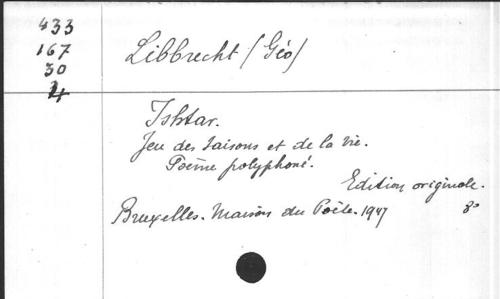 433
167
30
4
Libbrecht (Géo)
Ishtar.
Jeu des Saisons et de la vie.
Poème polyphoné.
Edition originale.
Bruxelles. Maison du Poète. 1947
8°